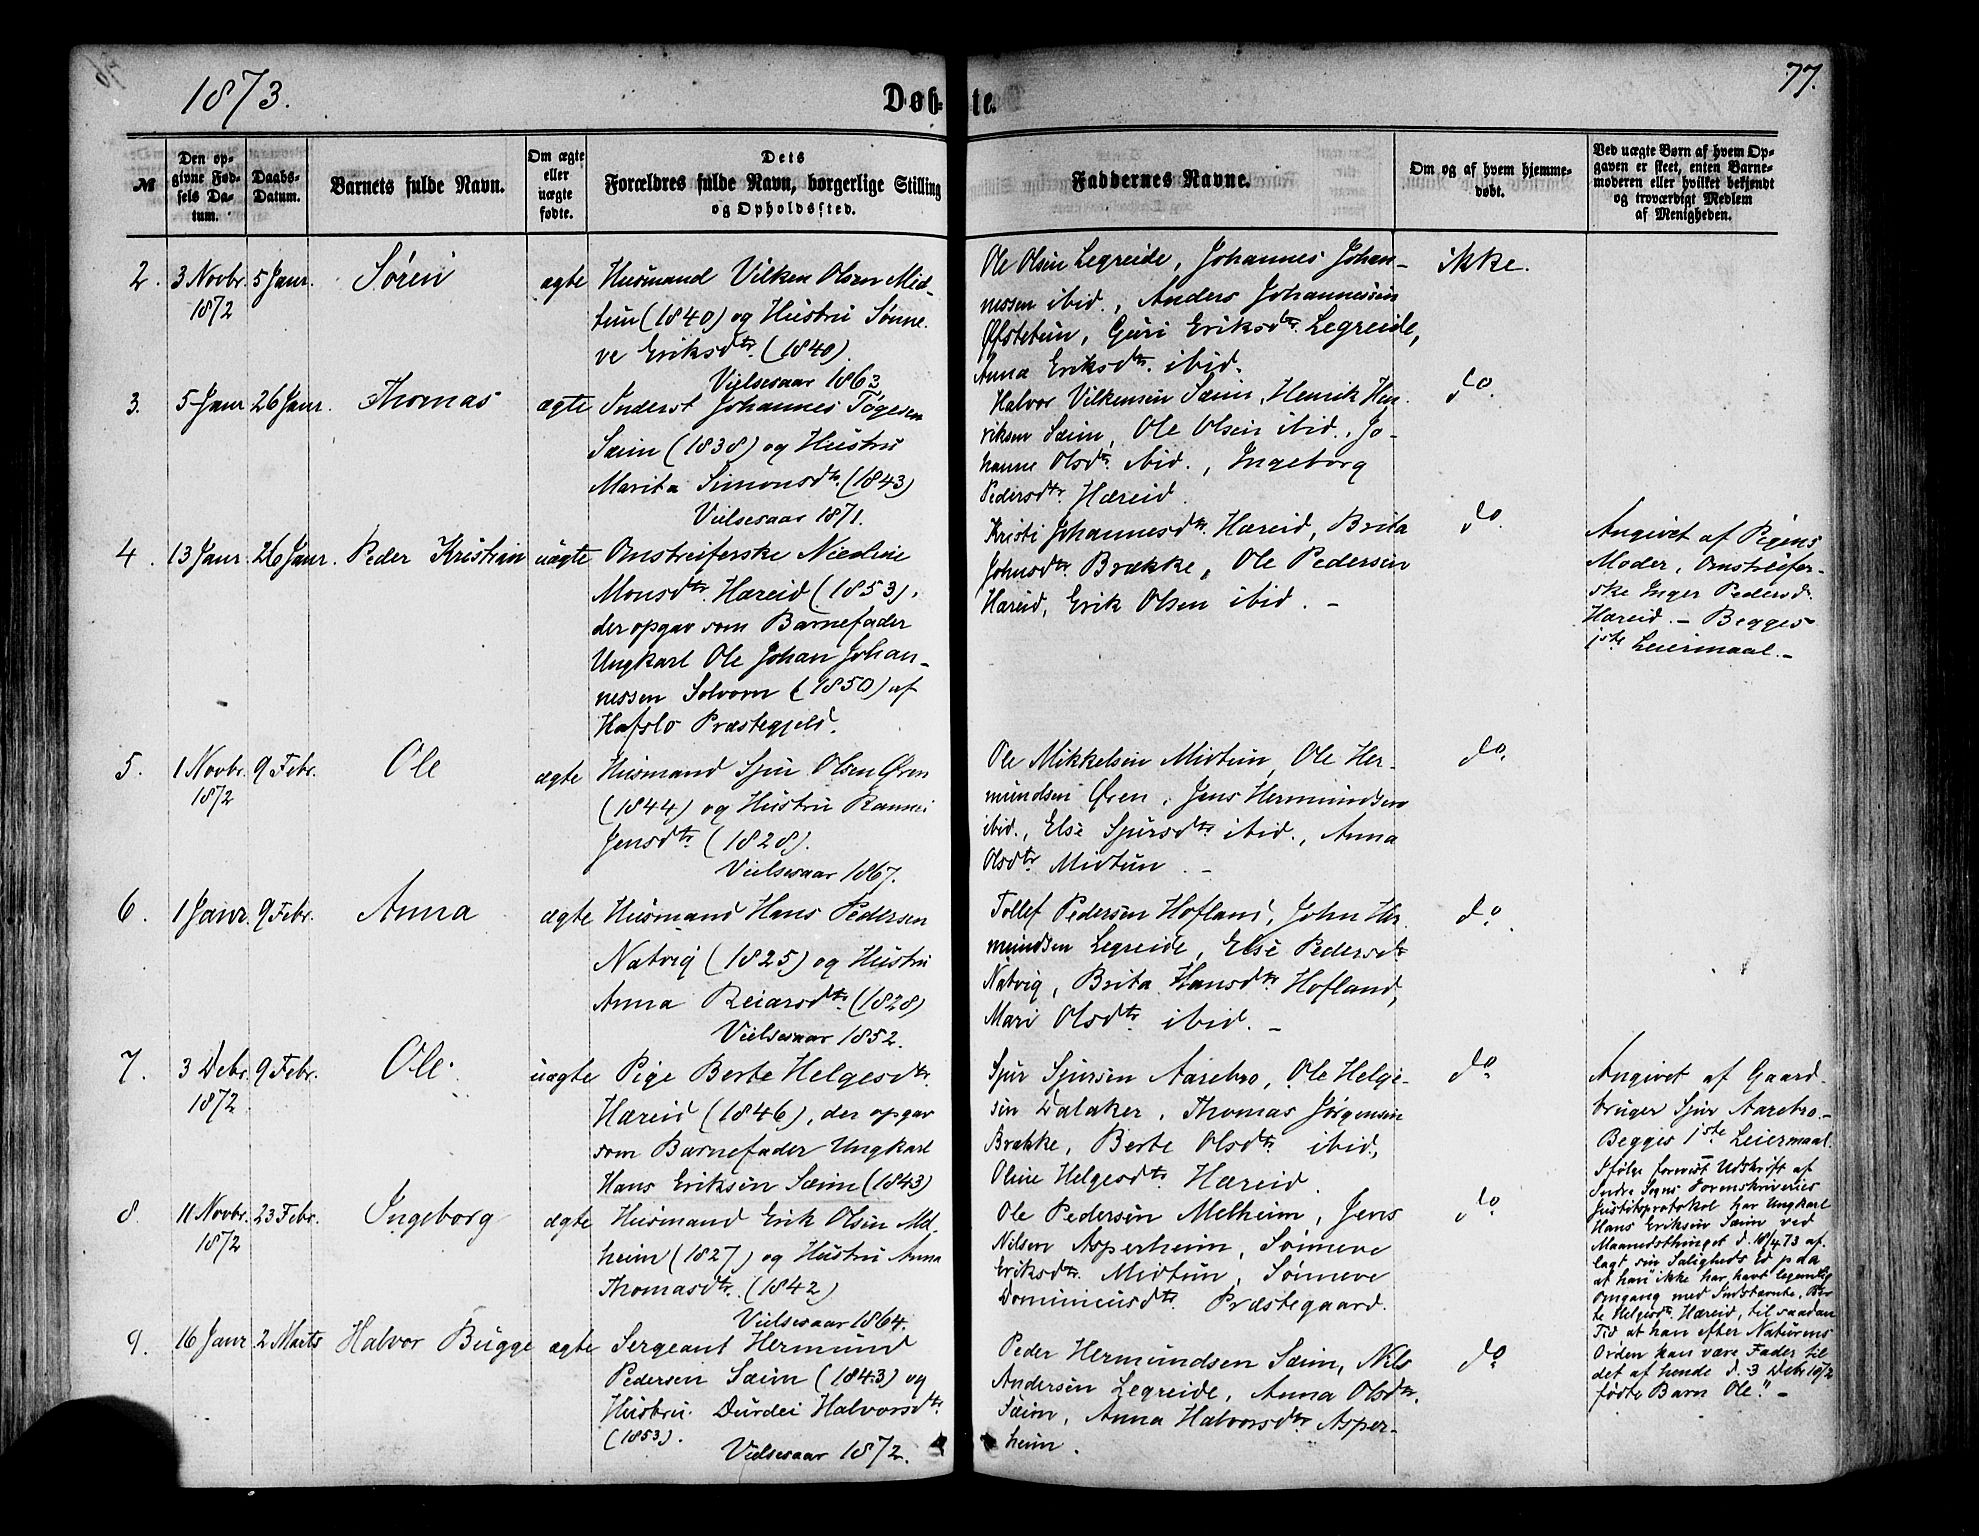 1873.
Døb-
te.
77.
№
Den op-
givne Fød-
sels Da-
tum.
Daabs-
Datum.
Barnets fulde Navn.
Om ægte
eller
uægte
fødte.
Dets
Forældres fulde Navn, borgerlige Stilling
og Opholdssted.
Faddernes Navne.
Om og af hvem hjemme-
døbt.
Ved uægte Børn af hvem Op-
gaven er skeet, enten Barne-
moderen eller hvilket bekjendt
og troværdigt Medlem
af Menigheden.
2. 3 Novbr. 5 Janr. Søren ægte
1872
Husmand Vilken Olsen Mid-
tun (1840) og Hustru Sønne-
ve Eriksdtr. (1840).
Vielsesaar 1863.
Ole Olsen Legreide, Johannes Johan-
nessen ibid., Anders Johannessen
Øfstetun, Guri Eriksdtr. Legreide,
Anna Eriksdtr. ibid.
ikke.
3. 5 Janr 26 Janr. Thomas ægte
Inderst Johannes Tøgesen
Sæim (1838) og Hustru
Marita Simonsdtr. (1843)
Vielsesaar 1871.
Halvor Vilkensen Sæim, Henrik Hen-
riksen Sæim, Ole Olsen ibid., Jo-
hanne Olsdtr. ibid., Ingeborg
Pedersdtr. Hæreid.
do.
4. 13 Janr. 26 Janr. Peder Kristian uægte
Omstreiferske Nicoline
Monsdtr. Hæreid (1853),
der opgav som Barnefader
Ungkarl Ole Johan Johan-
nessen Solvorn (1850) af
Hafslo Præstegjeld.
Kristi Johannesdtr. Hæreid, Brita
Johnsdtr. Brække, Ole Pedersen
Hæreid, Erik Olsen ibid. -
do.
Angivet af Pigens
Moder, Omstreifer-
ske Inger Pedersd.
Hæreid. - Begges
1ste Leiermaal. -
5. 1 Novbr. 9 Febr. Ole ægte
1872
Husmand Sjur Olsen Øren
(1844) og Hustru Rannei
Jensdtr. (1828).
Vielsesaar 1867.
Ole Mikkelsen Midtun, Ole Her-
mundsen Øren, Jens Hermundsen
ibid., Else Sjursdtr. ibid., Anna
Olsdtr. Midtun. -
do.
6. 1 Janr. 9 Febr. Anna ægte
Husmand Hans Pedersen
Natvig (1825) og Hustru
Anna Reiarsdtr. (1828)
Vielsesaar 1852.
Tollef Pedersen Hofland, John Her-
mundsen Legreide, Else Pedersdtr.
Natvig, Brita Hansdtr. Hofland,
Mari Olsdtr. ibid. -
do.
7. 3 Debr. 9 Febr. Ole. uægte
1872.
Pige Berte Helgesdtr.
Hæreid (1846), der opgav
som Barnefader Ungkarl
Hans Eriksen Sæim (1843)
Sjur Sjursen Aarebro, Ole Helge-
sen Dalaker, Thomas Jørgensen
Brække, Berte Olsdtr. ibid,
Oline Helgesdtr. Hæreid.
do.
Angivet af Gaard-
bruger Sjur Aarebro. -
Begges 1ste Leiermaal.
Ifølge forevist Udskrift af
Indre Sogns Sorenskriveries
Justitsprotokol har Ungkarl
Hans Eriksen Sæim ved
Maanedsthinget d. 18/4 73 af-
lagt sin Saligheds Ed paa
at han ikke har havt legemlig
Omgang med Indstævnte, Ber-
te Helgesdr. Hæreid, til saadan
Tid at han efter Naturens
Orden kan være Fader til
det af hende d. 3 Debr 1872
fødte Barn Ole." -
8. 11 Novbr. 23 Febr. Ingeborg ægte
1872
Husmand Erik Olsen Mel-
heim (1827) og Hustru Anna
Thomasdtr. (1842)
Vielsesaar 1864.
Ole Pedersen Melheim, Jens
Nilsen Asperheim, Sønneve
Eriksdtr. Midtun, Sønneve
Dominicusdtr. Præstegaard.
do
9. 16 Janr 2 Marts Halvor Bugge ægte
Sergeant Hermund
Pedersen Sæim (1843) og
Hustru Durdei Halvorsdtr.
(1853).
Vielsesaar 1872.
Peder Hermundsen Sæim, Nils
Andersen Legreide, Anna Olsdtr.
Sæim, Anna Halvorsdtr. Asper-
heim.
do